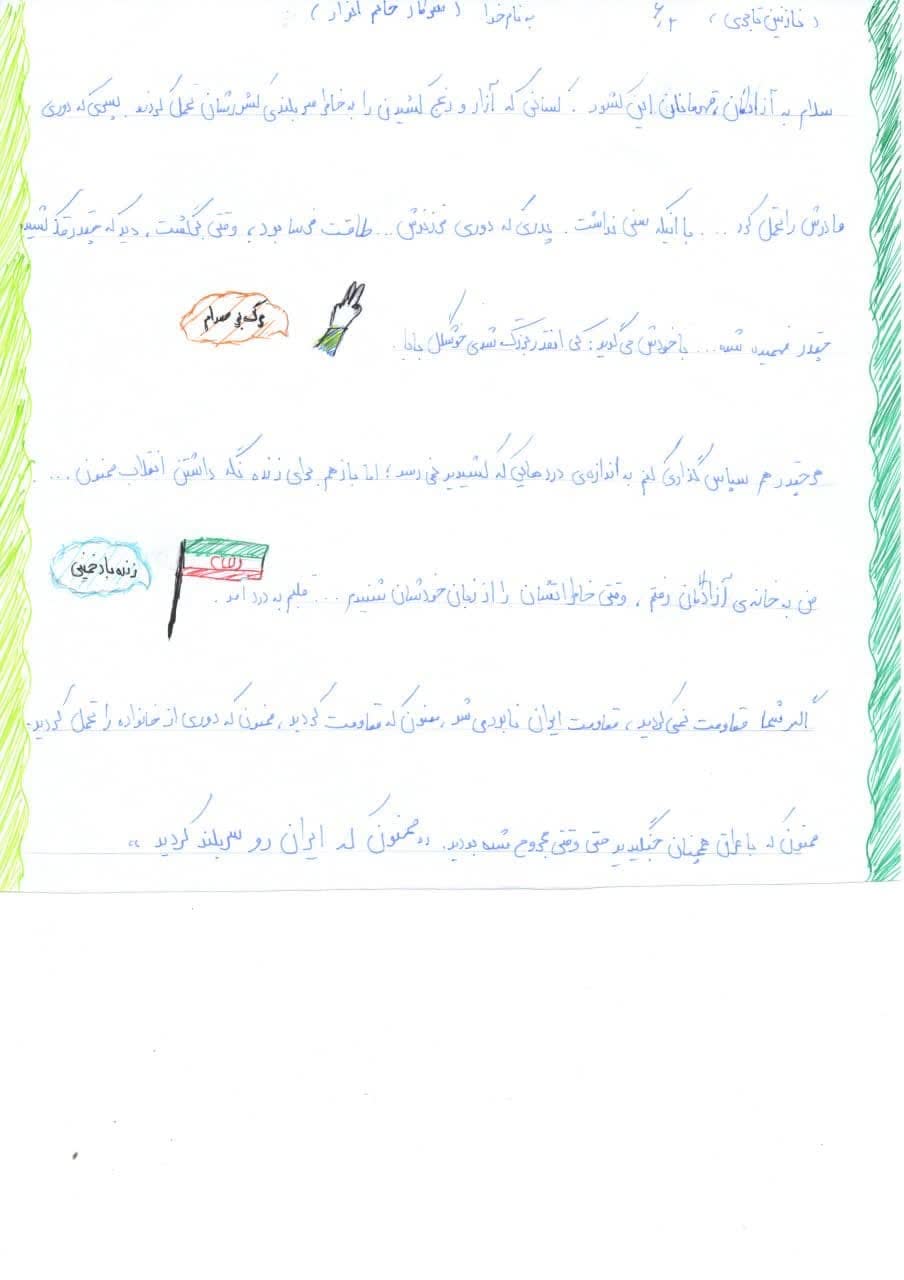 ( نازنین تاجری ) ۶/۲ به نام خدا ( سرکار خانم ابزار )
سلام به آزادگان قهرمانان این کشور . کسانی که آزار و رنج کشیدن را به خاطر سربلندی کشورشان تحمل کردند. پسری که دوری
مادرش را تحمل کرد ... با اینکه سنی نداشت . پدری که دوری فرزندش ... طاقت فرسا بود ، وقتی برگشت ، دید که چقدر قد کشیده
چقدر فهمیده شده ... با خودش می گوید : کی انقدر بزرگ شدی خوشگل بابا .
مرگ بر صدام
هر چقدر هم سپاس گذاری کنم به اندازه ی درد هایی که کشیدید نمی رسد ؛ اما باز هم برای زنده نگه داشتن انقلاب ممنون ... .
من به خانه ی آزادگان رفتم ، وقتی خاطراتشان را از زبان خودشان شنیدم ... قلبم به درد آمد .
زنده باد خمینی
اگر شما مقاومت نمی کردید ، مقاومت ایران نابود می شد ، ممنون که مقاومت کردید ، ممنون که دوری از خانواده را تحمل کردید .
ممنون که با عراق همچنان جنگیدید حتی وقتی مجروح شده بودید. « ممنون که ایران رو سربلند کردید »